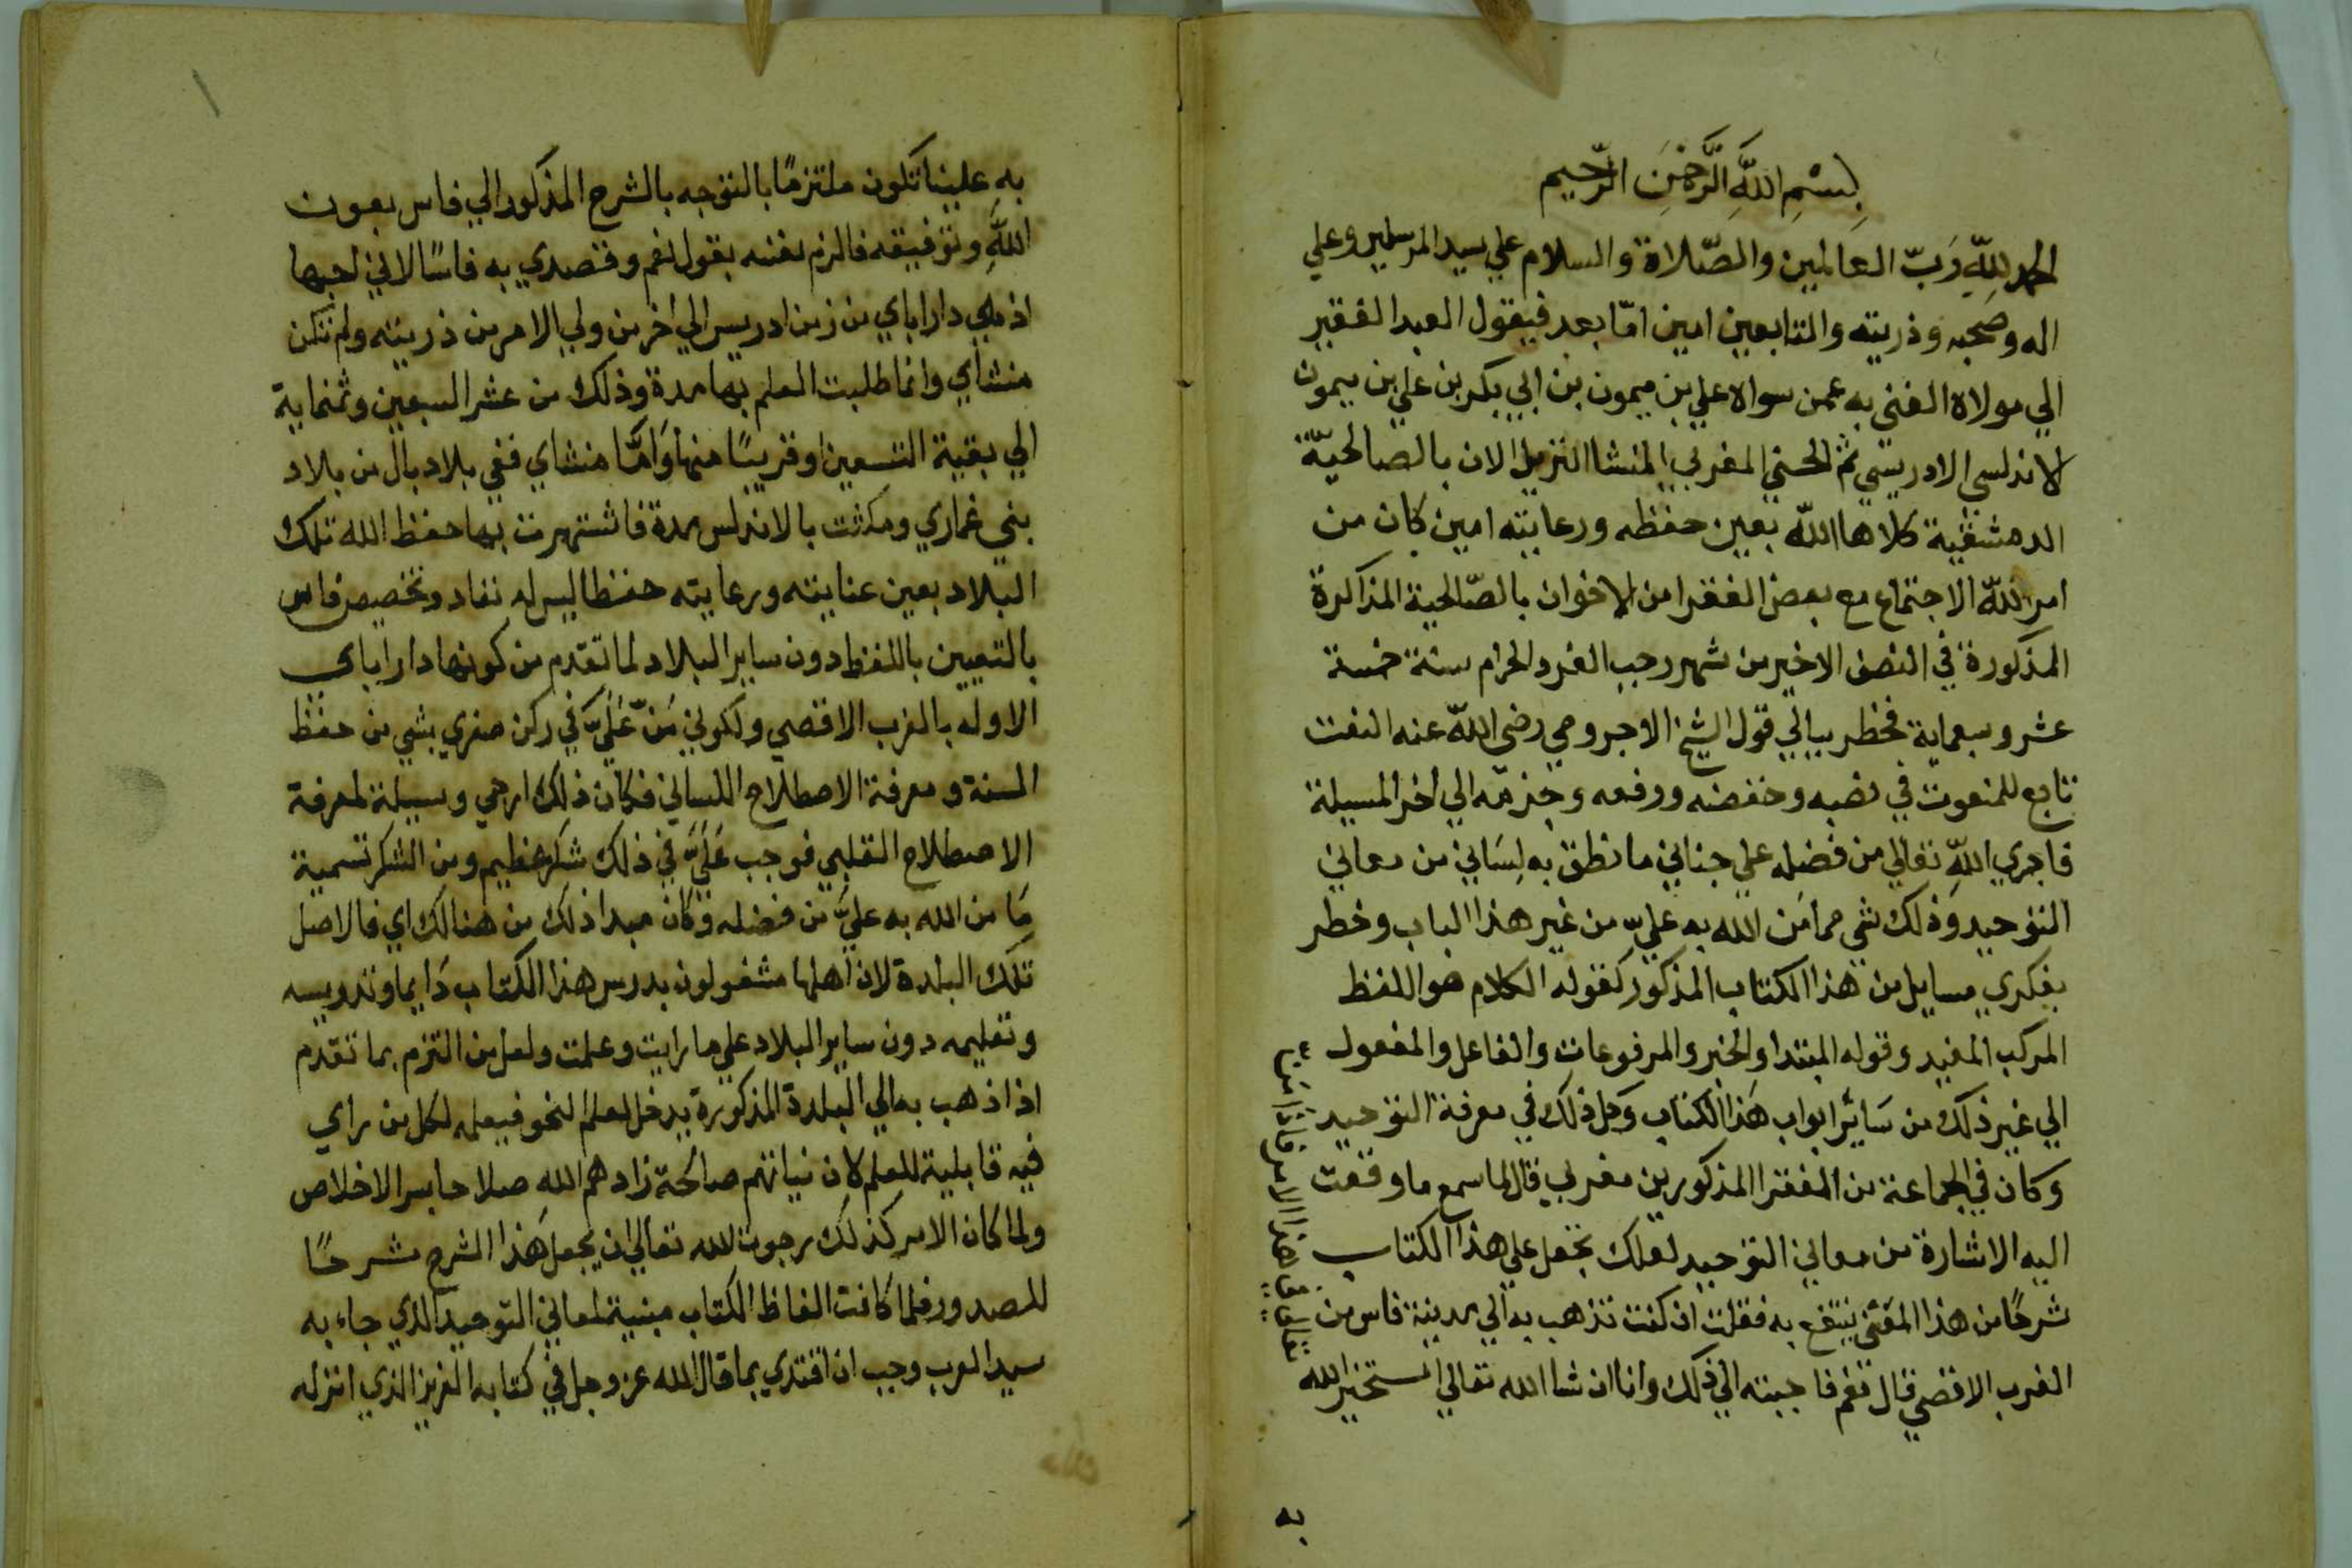 بِسْمِ اللَّهِ الرَّحْمَنِ الرَّحِيم
الحمد للّٰه رَبّ العالمين والصّلاة والسلام علي سيد المرسلين وعلي
اله وصحبه وذريته والتابعين امين امّا بعد فيقول العبد الفقير
الي مولاه الغني به عمن سواه علي بن ميمون بن ابي بكر بن علي بن ميمون
الاندلسي الادريسي ثم الحسني المغربي المنشا النزيل الان بالصالحيّة
الدمشقية كلاها اللّه بعين حفظه ورعايته امين كان من
امر اللّه الاجتماع مع بعض الفقرا من الاخوان بالصّالحية المذاكرة
المذكورة في النصف الاخير من شهر رجب الفرد الحرام سنة خمسة
عشر وسبعماية فخطر ببالي قول الشيخ الاجرومي رضي اللّه عنه النعت
تابع للمنعوت في نصبه وخفضه ورفعه وجزمه الي اخر المسيلة
فاجري اللّه تعالي من فضله علي جناني ما نطق به لِسَاني من معاني
التوحيد وَذلك شي مما مَن الله به عليّ من غير هذا الباب وخطر
بفكري مسايل من هذا الكتاب المذكور كقوله الكلام هو اللفظ
المركب المفيد وقوله المبتدا والخبر والمرفوعات والفاعل والمفعول
الي غير ذلك من سَائر ابواب هَذا الكتاب وَكل ذلك في معرفة التوحيد
وكان في الجماعة من الفقرا المذكورين مغربي قال لما سمع ما وقعت
اليه الاشارة من معاني التوحيد لعلك تجعل علي هذا الكتاب
شرحًا من هذا المعني ينتفع به فقلت ان كنت تذهب به الي مدينة فاس من
الغرب الاقصي قال نعم فاجبته الي ذلك وانا ان شا الله تعالي استخير الله
به
به علينا تكون ملتزمًا بالتوجه بالشرح المذكور الي فاس بعون
اللَّهِ وتوفيقه فالزم نفسه بقول نعم وقصدي به فاسًا لاني احبها
اذ هي دار اباي من زمن ادريس الي اخر من ولي الامر من ذريته ولم تكن
منشاي وانما طلبت العلم بها مدة وذلك من عشر السبعين وثمنماية
الي بقية التسعين او قريبًا منها وَامَّا منشاي ففي بلاد بال من بلاد
بني غماري ومكثت بالاندلس مدة فاشتهرت بها حفظ الله تلك
البلاد بعين عنايته ورعايته حفظا ليس له نفاد وتخصيص فاس
بالتعيين باللفظ دون ساير البلاد لما تقدم من كونها دار اباي
الاوله بالغرب الاقصي ولكوني مَنّ عَلَيَّ في ركن صغري بشي من حفظ
السنة ومعرفة الاصطلاح اللساني فكان ذلك ارجي وسيلة لمعرفة
الاصطلاح القلبي فوجب عَلَيَّ في ذلك شكر عظيم ومن الشكر تسمية
مَا من الله به عليَّ من فضله وَكان مبدا ذلك من هنالك اي فالاصل
تلك البلدة لان اهلها مشغولون بدرس هذا الكتاب دَايما وتدريسه
وتعليمه دون ساير البلاد علي ما رايت وعلمت ولعل من التزم بما تقدم
اذا ذهب به الي البلدة المذكورة يدخل لعلم النحو فيعلمه لكل من راي
فيه قابلية للعلم لان نياتهم صالحة زادهم اللهِ صلاحا بسر الاخلاص
ولما كان الامر كذلك رجوت الله تعالي ان يجعل هَذا الشرح شرحًا
للصدور فلما كانت الفاظ الكتاب مبنية لمعاني التوحيد الذي جاء به
سيد العرب وجب ان اقتدي بما قال الله عز وجل في كتابه العزيز الذي انزله